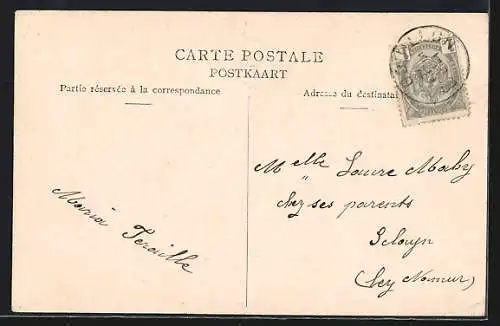 CARTE POSTALE
POSTKAART
Partie réservée à la correspondance
Adresse du destinatai
Melle Laure Mahy
chez ses parents
Sclayn
(lez Namur)
Maria